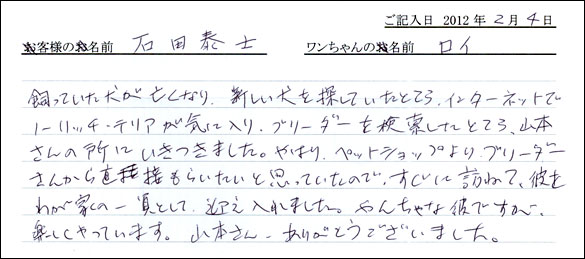 ご記入日 2012年2月4日
お客様のお名前 石田泰士 ワンちゃんのお名前 ロイ
飼っていた犬が亡くなり、新しい犬を探していたところ、インターネットで
ノーリッチ・テリアが気に入り、ブリーダーを検索したところ、山本
さんの所にいきつきました。やはり、ペットショップより、ブリーダー
さんから直接もらいたいと思っていたので、すぐに訪ねて、彼を
わが家の一員として、迎え入れました。やんちゃな彼ですが、
楽しくやっています。山本さん、ありがとうございました。